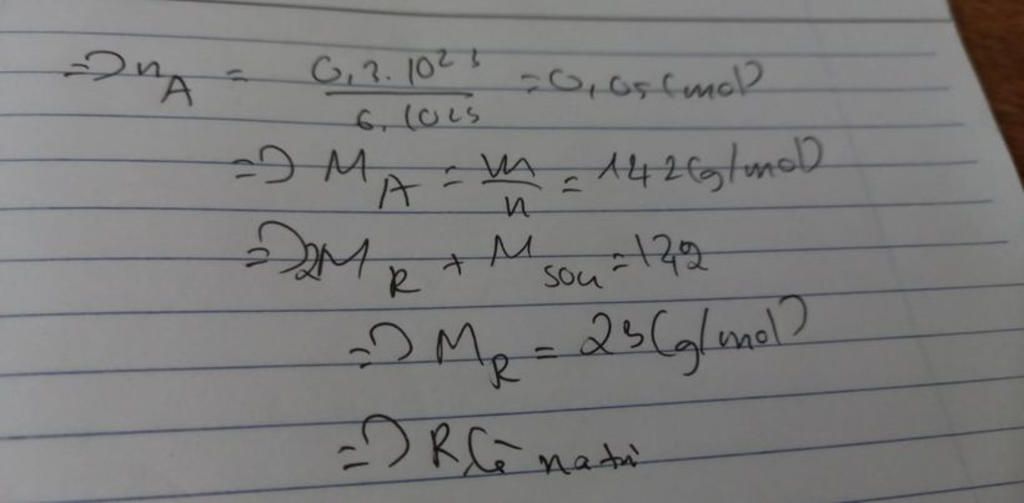 => n_A = 0,3.10^23 / 6.10^23 = 0,05 (mol)
=> M_A = m/n = 142 (g/mol)
=> 2M_R + M_SO4 = 142
=> M_R = 23 (g/mol)
=> R là natri